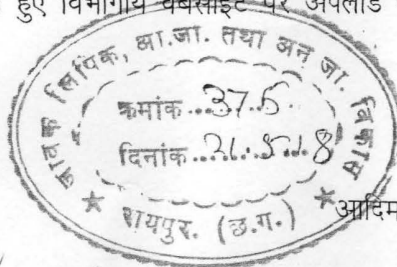 हुए विभागीय वेबसाईट पर अपलोड
जावक लिपिक, आ.जा. तथा अनु.जा. विकास
क्रमांक...37.5.
दिनांक...21.5.18
रायपुर. (छ.ग.)
आदिम